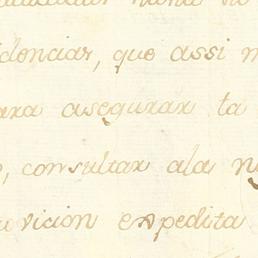 idenciar, que assi m
ara asegurar ta
, consultar ala n
vicion expedita